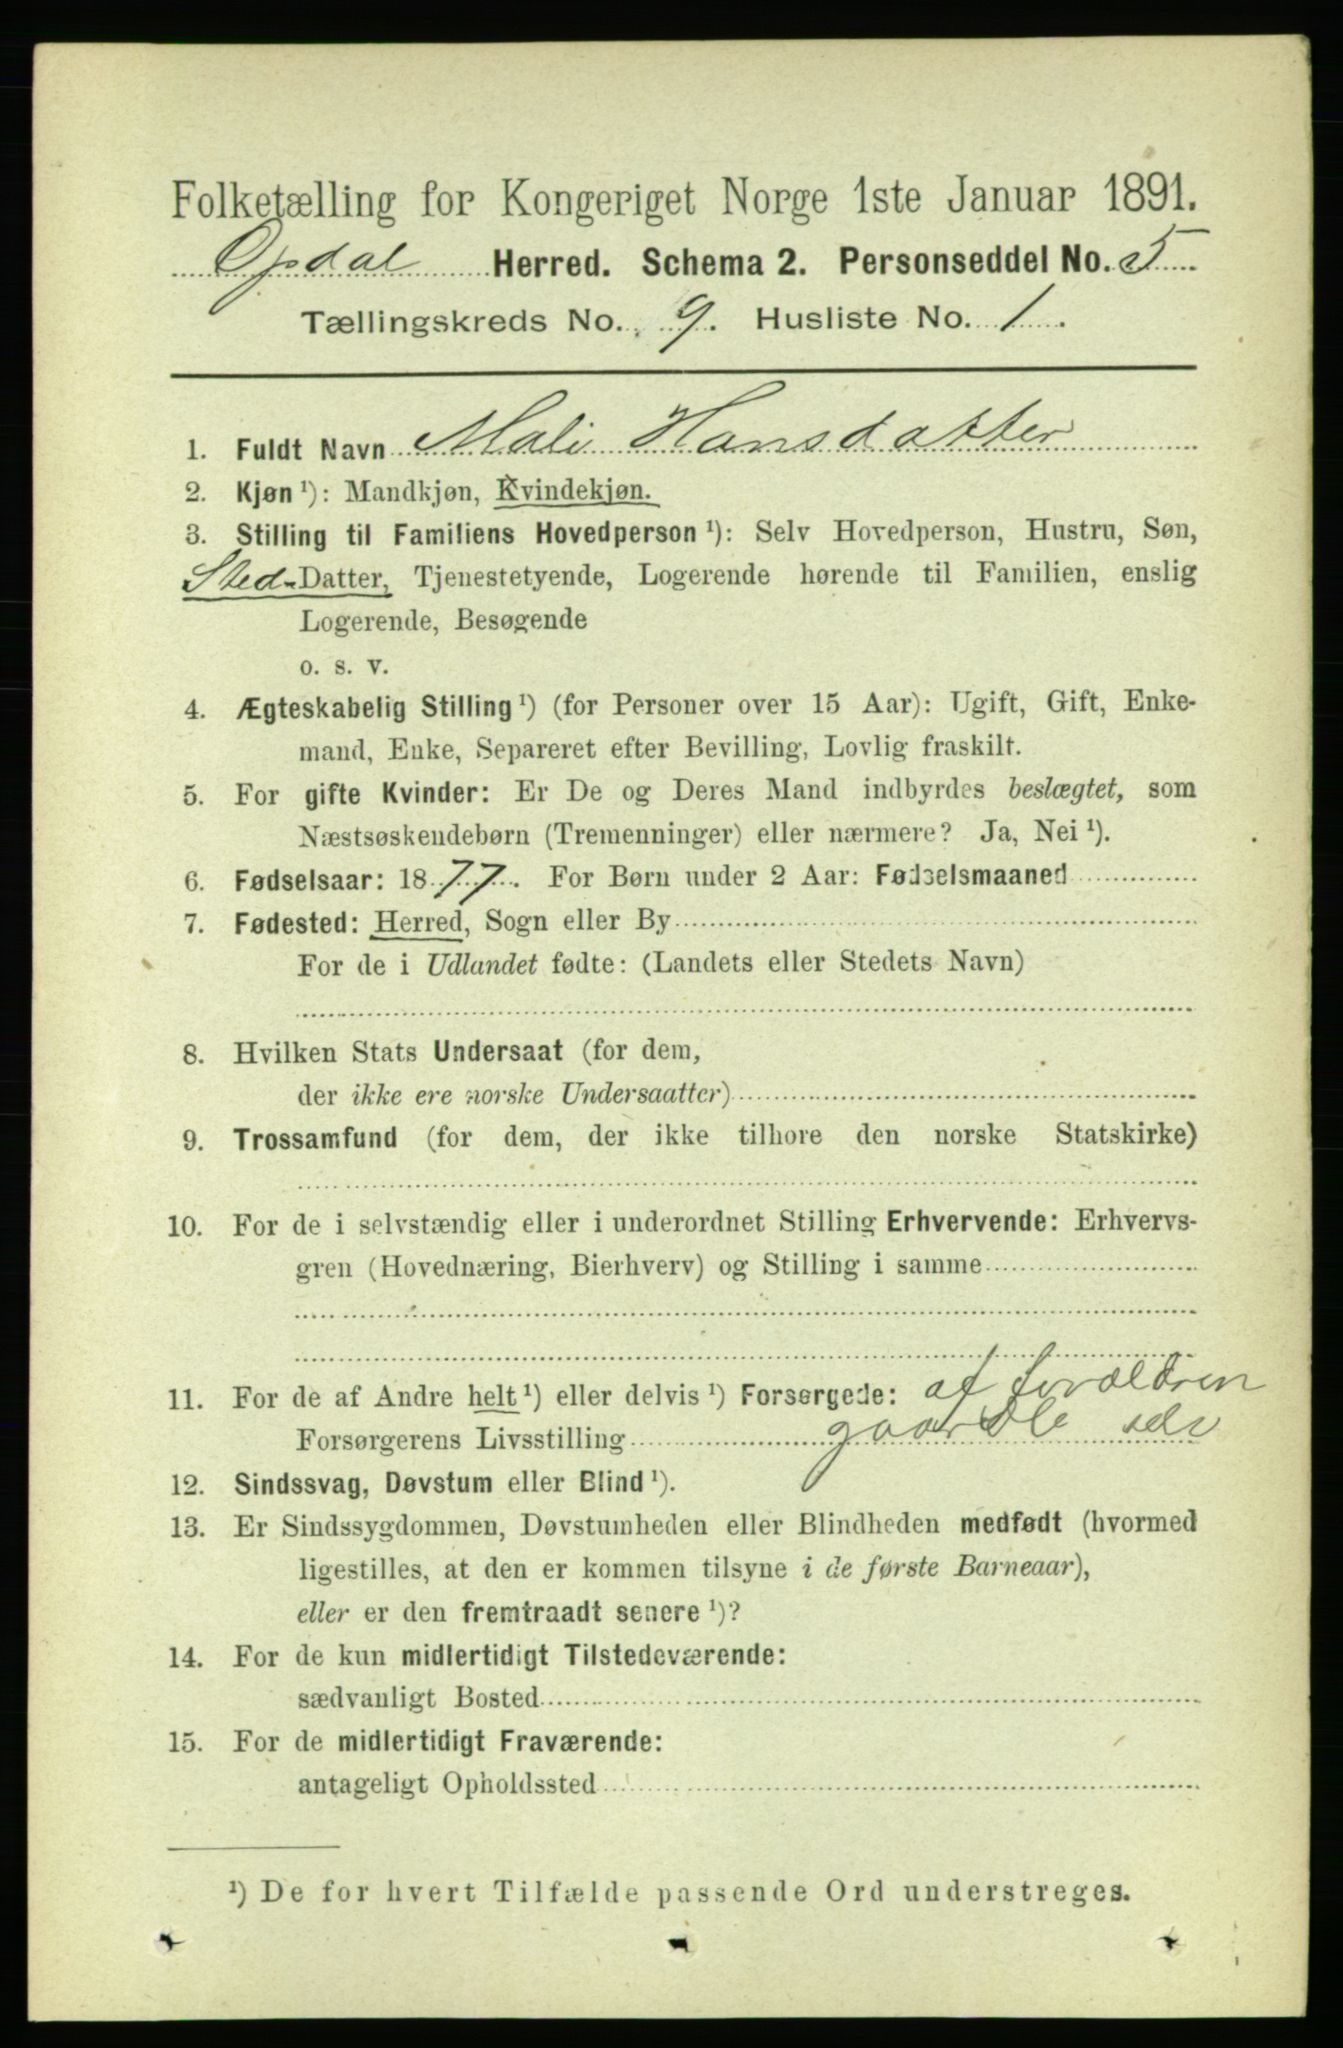 Folketælling for Kongeriget Norge 1ste Januar 1891.
Opdal Herred. Schema 2. Personseddel No. 5
Tællingskreds No. 9. Husliste No. 1.
1. Fuldt Navn Mali Hansdatter
2. Kjøn ¹): Mandkjøn, Kvindekjøn.
3. Stilling til Familiens Hovedperson ¹): Selv Hovedperson, Hustru, Søn,
Sted-Datter, Tjenestetyende, Logerende hørende til Familien, enslig
Logerende, Besøgende
o. s. v.
4. Ægteskabelig Stilling ¹) (for Personer over 15 Aar): Ugift, Gift, Enke-
mand, Enke, Separeret efter Bevilling, Lovlig fraskilt.
5. For gifte Kvinder: Er De og Deres Mand indbyrdes beslægtet, som
Næstsøskendebørn (Tremenninger) eller nærmere? Ja, Nei ¹).
6. Fødselsaar: 1877. For Børn under 2 Aar: Fødselsmaaned
7. Fødested: Herred, Sogn eller By
For de i Udlandet fødte: (Landets eller Stedets Navn)
8. Hvilken Stats Undersaat (for dem,
der ikke ere norske Undersaatter)
9. Trossamfund (for dem, der ikke tilhore den norske Statskirke)
10. For de i selvstændig eller i underordnet Stilling Erhvervende: Erhvervs-
gren (Hovednæring, Bierhverv) og Stilling i samme
11. For de af Andre helt ¹) eller delvis ¹) Forsørgede: af forældren
Forsørgerens Livsstilling
12. Sindssvag, Døvstum eller Blind ¹).
13. Er Sindssygdommen, Døvstumheden eller Blindheden medfødt (hvormed
ligestilles, at den er kommen tilsyne i de første Barneaar),
eller er den fremtraadt senere ¹)?
14. For de kun midlertidigt Tilstedeværende:
sædvanligt Bosted
15. For de midlertidigt Fraværende:
antageligt Opholdssted
¹) De for hvert Tilfælde passende Ord understreges.